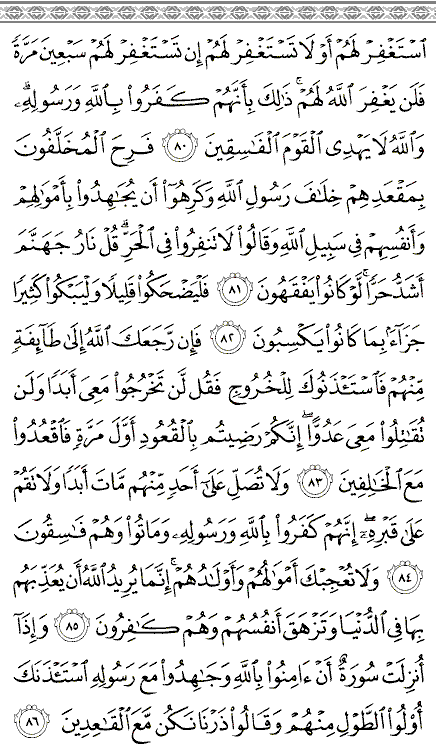 ٱسۡتَغۡفِرۡ لَهُمۡ أَوۡ لَا تَسۡتَغۡفِرۡ لَهُمۡ إِن تَسۡتَغۡفِرۡ لَهُمۡ سَبۡعِينَ مَرَّةٗ
فَلَن يَغۡفِرَ ٱللَّهُ لَهُمۡۚ ذَٰلِكَ بِأَنَّهُمۡ كَفَرُواْ بِٱللَّهِ وَرَسُولِهِۦۗ
وَٱللَّهُ لَا يَهۡدِي ٱلۡقَوۡمَ ٱلۡفَٰسِقِينَ ٨٠ فَرِحَ ٱلۡمُخَلَّفُونَ
بِمَقۡعَدِهِمۡ خِلَٰفَ رَسُولِ ٱللَّهِ وَكَرِهُوٓاْ أَن يُجَٰهِدُواْ بِأَمۡوَٰلِهِمۡ
وَأَنفُسِهِمۡ فِي سَبِيلِ ٱللَّهِ وَقَالُواْ لَا تَنفِرُواْ فِي ٱلۡحَرِّۗ قُلۡ نَارُ جَهَنَّمَ
أَشَدُّ حَرّٗاۚ لَّوۡ كَانُواْ يَفۡقَهُونَ ٨١ فَلۡيَضۡحَكُواْ قَلِيلٗا وَلۡيَبۡكُواْ كَثِيرٗا
جَزَآءَۢ بِمَا كَانُواْ يَكۡسِبُونَ ٨٢ فَإِن رَّجَعَكَ ٱللَّهُ إِلَىٰ طَآئِفَةٖ
مِّنۡهُمۡ فَٱسۡتَـٔۡذَنُوكَ لِلۡخُرُوجِ فَقُل لَّن تَخۡرُجُواْ مَعِيَ أَبَدٗا وَلَن
تُقَٰتِلُواْ مَعِيَ عَدُوًّاۖ إِنَّكُمۡ رَضِيتُم بِٱلۡقُعُودِ أَوَّلَ مَرَّةٖ فَٱقۡعُدُواْ
مَعَ ٱلۡخَٰلِفِينَ ٨٣ وَلَا تُصَلِّ عَلَىٰٓ أَحَدٖ مِّنۡهُم مَّاتَ أَبَدٗا وَلَا تَقُمۡ
عَلَىٰ قَبۡرِهِۦٓۖ إِنَّهُمۡ كَفَرُواْ بِٱللَّهِ وَرَسُولِهِۦ وَمَاتُواْ وَهُمۡ فَٰسِقُونَ
٨٤ وَلَا تُعۡجِبۡكَ أَمۡوَٰلُهُمۡ وَأَوۡلَٰدُهُمۡۚ إِنَّمَا يُرِيدُ ٱللَّهُ أَن يُعَذِّبَهُم
بِهَا فِي ٱلدُّنۡيَا وَتَزۡهَقَ أَنفُسُهُمۡ وَهُمۡ كَٰفِرُونَ ٨٥ وَإِذَآ
أُنزِلَتۡ سُورَةٌ أَنۡ ءَامِنُواْ بِٱللَّهِ وَجَٰهِدُواْ مَعَ رَسُولِهِ ٱسۡتَـٔۡذَنَكَ
أُوْلُواْ ٱلطَّوۡلِ مِنۡهُمۡ وَقَالُواْ ذَرۡنَا نَكُن مَّعَ ٱلۡقَٰعِدِينَ ٨٦